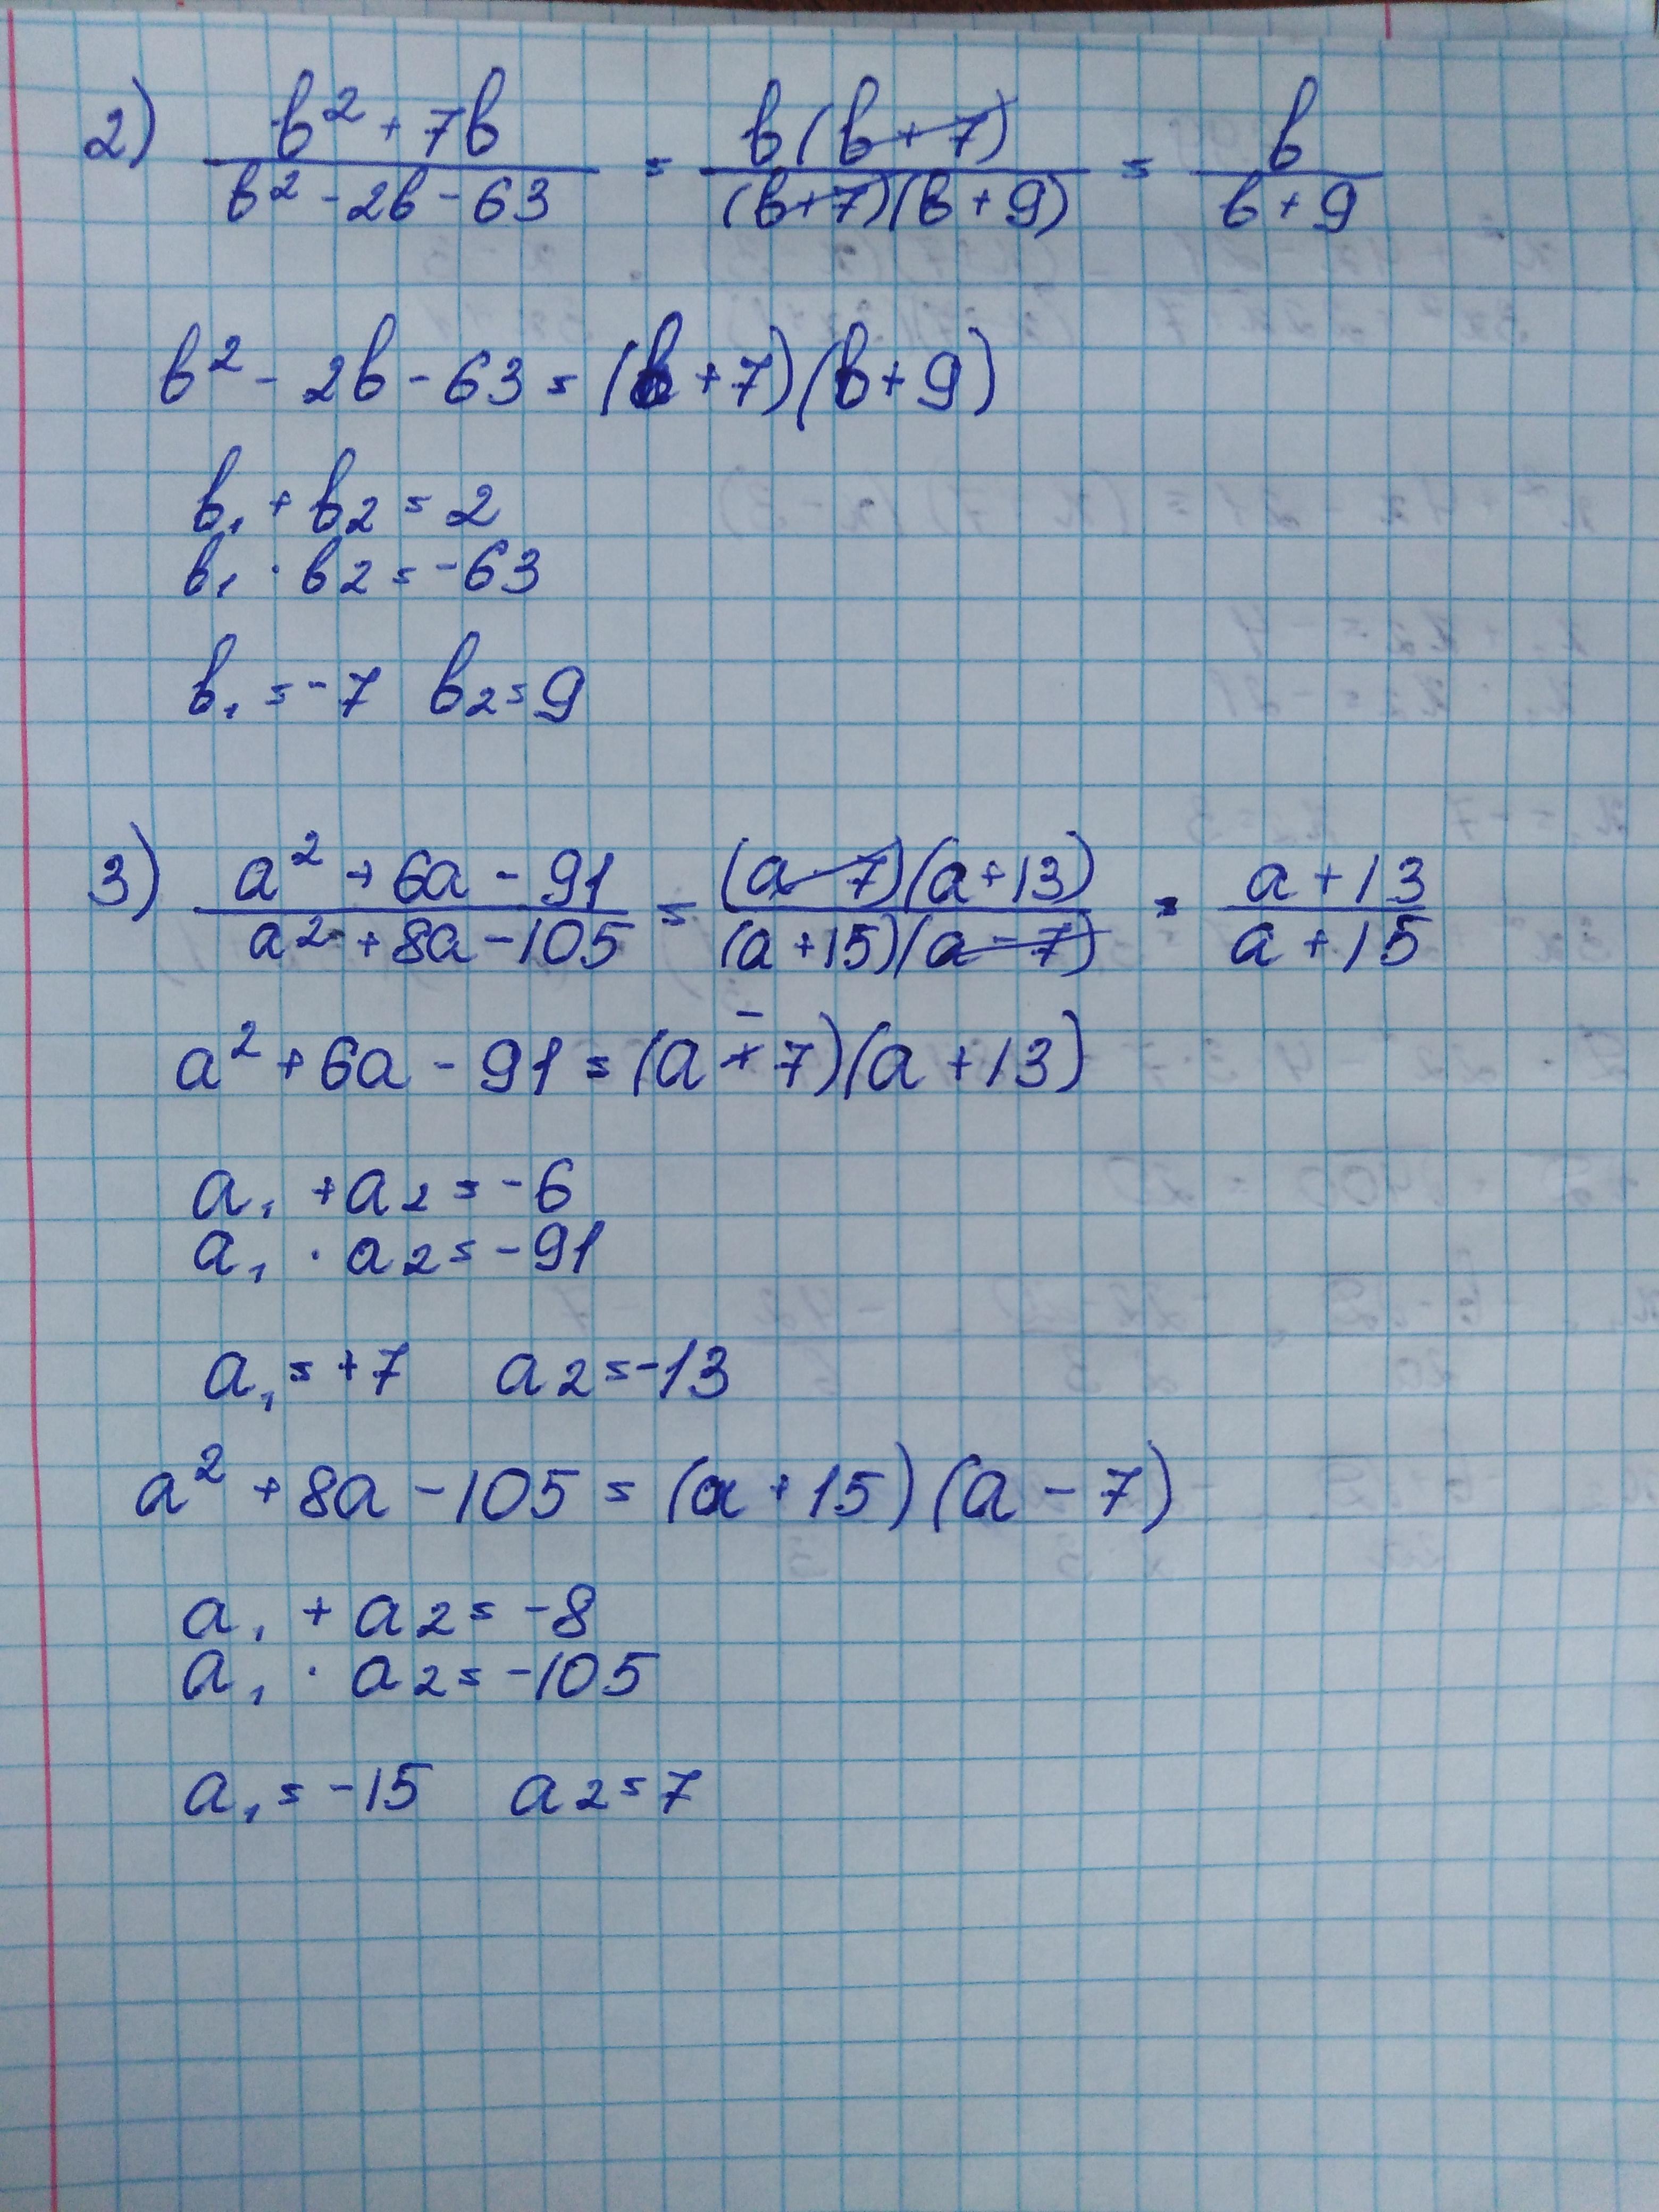 2) (b² + 7b)/(b² - 2b - 63) = (b(b + 7))/((b+7)(b + 9)) = b/(b + 9)
b² - 2b - 63 = (b + 7)(b + 9)
b₁ + b₂ = 2
b₁ · b₂ = -63
b₁ = -7 b₂ = 9
3) (a² + 6a - 91)/(a² + 8a - 105) = ((a - 7)(a + 13))/((a + 15)(a - 7)) = (a + 13)/(a + 15)
a² + 6a - 91 = (a - 7)(a + 13)
a₁ + a₂ = -6
a₁ · a₂ = -91
a₁ = +7 a₂ = -13
a² + 8a - 105 = (a + 15)(a - 7)
a₁ + a₂ = -8
a₁ · a₂ = -105
a₁ = -15 a₂ = 7